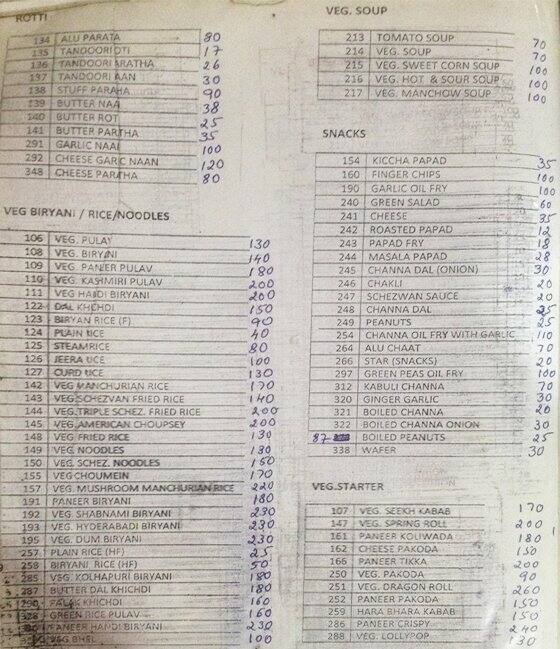 ROTTI
134 ALU PARATA 80
135 TANDOORI OTI 17
136 TANDOORI ARATHA 26
137 TANDOORI AAN 30
138 STUFF PARATHA 90
139 BUTTER NAA 38
140 BUTTER ROT 25
141 BUTTER PARTHA 35
291 GARLIC NAAI 100
292 CHEESE GARLIC NAAN 120
348 CHEESE PARTHA 80
VEG BIRYANI / RICE/NOODLES
106 VEG. PULAV 130
108 VEG. BIRYANI 140
109 VEG. PANEER PULAV 180
110 VEG. KASHMIRI PULAV 200
111 VEG HANDI BIRYANI 200
122 DAL KHICHDI 150
123 BIRYAN RICE (F) 90
124 PLAIN RICE 40
125 STEAM RICE 80
126 JEERA RICE 100
127 CURD RICE 130
142 VEG MANCHURIAN RICE 170
143 VEG.SCHEZVAN FRIED RICE 140
144 VEG.TRIPLE SCHEZ. FRIED RICE 200
145 VEG.AMERICAN CHOUPSEY 200
148 VEG FRIED RICE 130
149 VEG. NOODLES 180
150 VEG. SCHEZ. NOODLES 150
155 VEG CHOUMEIN 170
157 VEG. MUSHROOM MANCHURIAN RICE 220
191 PANEER BIRYANI 180
192 VEG. SHABNAMI BIRYANI 230
193 VEG. HYDERABADI BIRYANI 230
195 VEG. DUM BIRYANI 230
257 PLAIN RICE (HF) 25
258 BIRYANI RICE (HF) 50
285 VEG. KOLHAPURI BIRYANI 180
287 BUTTER DAL KHICHDI 180
290 PALAK KHICHDI 160
328 GREEN RICE PULAV 160
PANEER HANDI BIRYANI 230
VEG BHEL 100
VEG. SOUP
213 TOMATO SOUP 70
214 VEG. SOUP 70
215 VEG. SWEET CORN SOUP 100
216 VEG. HOT & SOUR SOUP 100
217 VEG. MANCHOW SOUP 100
SNACKS
154 KICCHA PAPAD 35
160 FINGER CHIPS 100
190 GARLIC OIL FRY 100
240 GREEN SALAD 60
241 CHEESE 35
242 ROASTED PAPAD 12
243 PAPAD FRY 18
244 MASALA PAPAD 28
245 CHANNA DAL (ONION) 30
246 CHAKLI 20
247 SCHEZWAN SAUCE 20
248 CHANNA DAL 25
249 PEANUTS 25
254 CHANNA OIL FRY WITH GARLIC 110
264 ALU CHAAT 70
266 STAR (SNACKS) 20
297 GREEN PEAS OIL FRY 100
312 KABULI CHANNA 70
320 GINGER GARLIC 30
321 BOILED CHANNA 20
322 BOILED CHANNA ONION 30
87 BOILED PEANUTS 25
338 WAFER 30
VEG.STARTER
107 VEG. SEEKH KABAB 170
147 VEG. SPRING ROLL 200
161 PANEER KOLIWADA 180
162 CHEESE PAKODA 150
166 PANEER TIKKA 200
250 VEG. PAKODA 90
251 VEG. DRAGON ROLL 260
252 PANEER PAKODA 150
259 HARA BHARA KABAB 150
286 PANEER CRISPY 240
288 VEG. LOLLYPOP 130